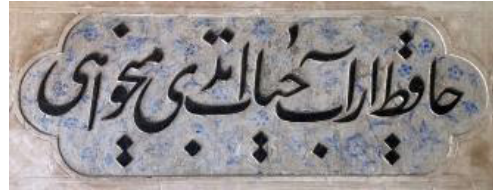 حافظ ار آب حیات ابدی میخواهی